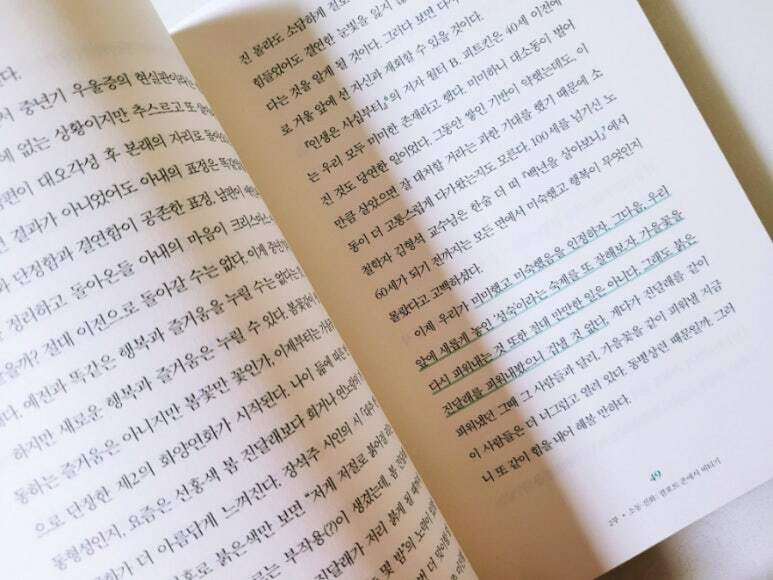 다.
서 중년기 우울증의 현실판이라
에 없는 상황이지만 추스르고 또 살
남편이 대오각성 후 본래의 자리로 돌아
선 결과가 아니었어도 아내의 표정은 똑
단정함과 결연함이 공존한 표정. 남편이
정리하고, 돌아온들 아내의 마음이 크리스
을까? 절대 이전으로 돌아갈 수는 없다. 이제 중년
다. 예전과 똑같은 행복과 즐거움을 누릴 수는 없다는
하지만 새로운 행복과 즐거움은 누릴 수 있다. 봄꽃
동하는 즐거움은 아니지만 봄꽃만 꽃인가. 이제부터는 가을
으로 단장한 제2의 화양연화가 시작된다. 나이 듦에 따른
동형성인지, 요즘은 선홍색 봄 진달래보다 희거나 연노
화가 더 아름답게 느껴진다. 장석주 시인의 시
호로 붉은색만 보면 “저게 저절로 붉어질
는 부작용(?)이 생겼는데, 봄
진달래가 저리 붉게 필
몇 밤”의 노력이
전 몰라도 소담하게
힘들었어도 결연한 눈빛을 잃지
다는 것을 알게 될 것이다. 그러다 보면 다시
로 거울 앞에 선 자신과 재회할 수 있을 것이다.
『인생은 사십부터』의 저자 월터 B. 피트킨은 40세 이전에
는 우리 모두 미미한 존재라고 했다. 미미하니 대소동이 벌어
진 것도 당연한 일이었다. 그동안 쌓인 기반이 약했는데도, 이
만큼 살았으면 잘 대처할 거라는 과한 기대를 했기 때문에 소
동이 더 고통스럽게 다가왔는지도 모른다. 100세를 넘기신 노
철학자 김형석 교수님은 한술 더 떠 『백년을 살아보니』에서
60세가 되기 전까지는 모든 면에서 미숙했고 행복이 무엇인지
몰랐다고 고백하셨다.
이제 우리가 미미했고 미숙했음을 인정하자. 그다음, 우리
앞에 새롭게 놓인 ‘성숙’이라는 숙제를 또 잘해보자. 가을꽃을
다시 피워내는 것 또한 절대 만만한 일은 아니다. 그래도 붉은
진달래를 피워내봤으니 겁날 것 없다. 게다가 진달래를 같이
피워냈던 그때 그 사람들과 달리, 가을꽃을 같이 피워낼 지금
이 사람들은 더 너그럽고 열려 있다. 동병상련 때문일까. 그러
니 또 같이 힘을 내어 해볼 만하다.
49
2부 • 소동 진화: 결호드 존에서 버티기